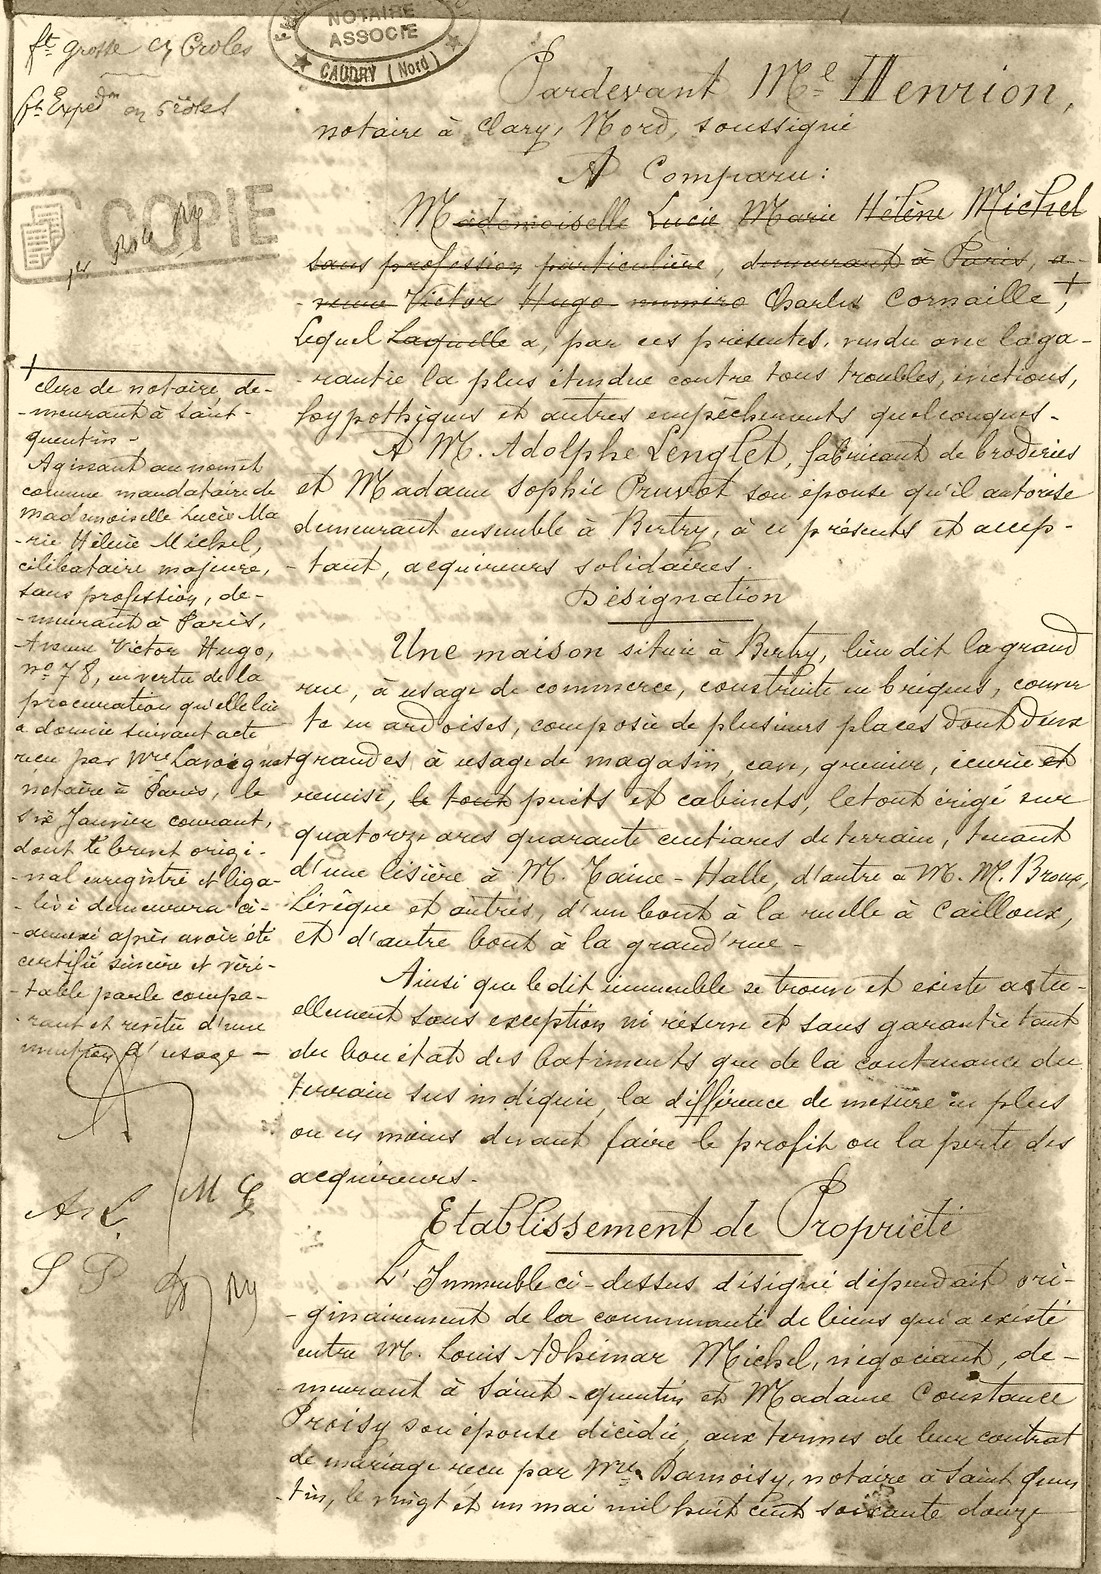 ft grosse en 6 roles
ft Expedon en 5 roles
NOTAIRE
ASSOCIÉ
CAUDRY (Nord)
COPIE
1er Role
Pardevant Me Henrion,
notaire à Clary, Nord, soussigné
A Comparu:
Mademoiselle Lucie Marie Hélène Michel
sans profession particulière, demeurant à Paris, a-
-venue Victor Hugo numéro Charles Cornaille +,
Lequel Laquelle a, par ces présentes, vendu avec la ga-
-rantie la plus étendue contre tous troubles, évictions,
hypothèques et autres empêchements quelconques-
A M. Adolphe Lenglet, fabricant de broderies
et Madame Sophie Pruvot son épouse qu'il autorise
demeurant ensemble à Bertry, à ce présents et accep-
-tant, acquéreurs solidaires.
Désignation
Une maison située à Bertry, lieu dit la grand
rue, à usage de commerce, construite en briques, couver
te en ardoises, composée de plusieurs places dont deux
grandes à usage de magasin, cave, grenier, écurie et
remise, le tout puits et cabinets, le tout érigé sur
quatorze ares quarante centiares de terrain, tenant
d'une lisière à M. Taine-Halle, d'autre à M. M. Broux,
Lévêque et autres, d'un bout à la ruelle à Cailloux,
et d'autre bout à la grand'rue -
Ainsi que ledit immeuble se trouve et existe actu-
ellement sans exception ni réserve et sans garantie tant
du bon état des batiments que de la contenance du
terrain sus indiquée, la différence de mesure en plus
ou en moins devant faire le profit ou la perte des
acquéreurs-
Etablissement de Propriété
L'Immeuble ci-dessus désigné dépendait ori-
-ginairement de la communauté de biens qui a existé
entre M. Louis Adhémar Michel, négociant, de-
-meurant à Saint-quentin et Madame Constance
Proisy son épouse décédée, aux termes de leur contrat
de mariage reçu par Me Damoisy, notaire à Saint quen
-tin, le vingt et un mai mil huit cent soixante douze
+ clerc de notaire, de-
-meurant à Saint-
quentin-
Agissant au nom et
comme mandataire de
mademoiselle Lucie Ma
-rie Hélène Michel,
célibataire majeure,
sans profession, de-
-meurant à Paris,
Avenue Victor Hugo,
no 78, en vertu de la
procuration qu'elle lui
a donnée suivant acte
reçu par Me Lavoignat
notaire à Paris, le
six Janvier courant,
dont le brevet origi-
-nal enregistré et léga-
-lisé demeurera ci-
-annexé après avoir été
certifié sincère et véri-
-table par le compa-
-rant et revêtu d'une
mention d'usage -
A. L.
S P